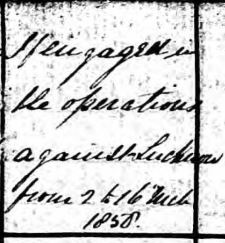 If engaged in
the operations
against Lucknow
from 2 to 16 March
1858.